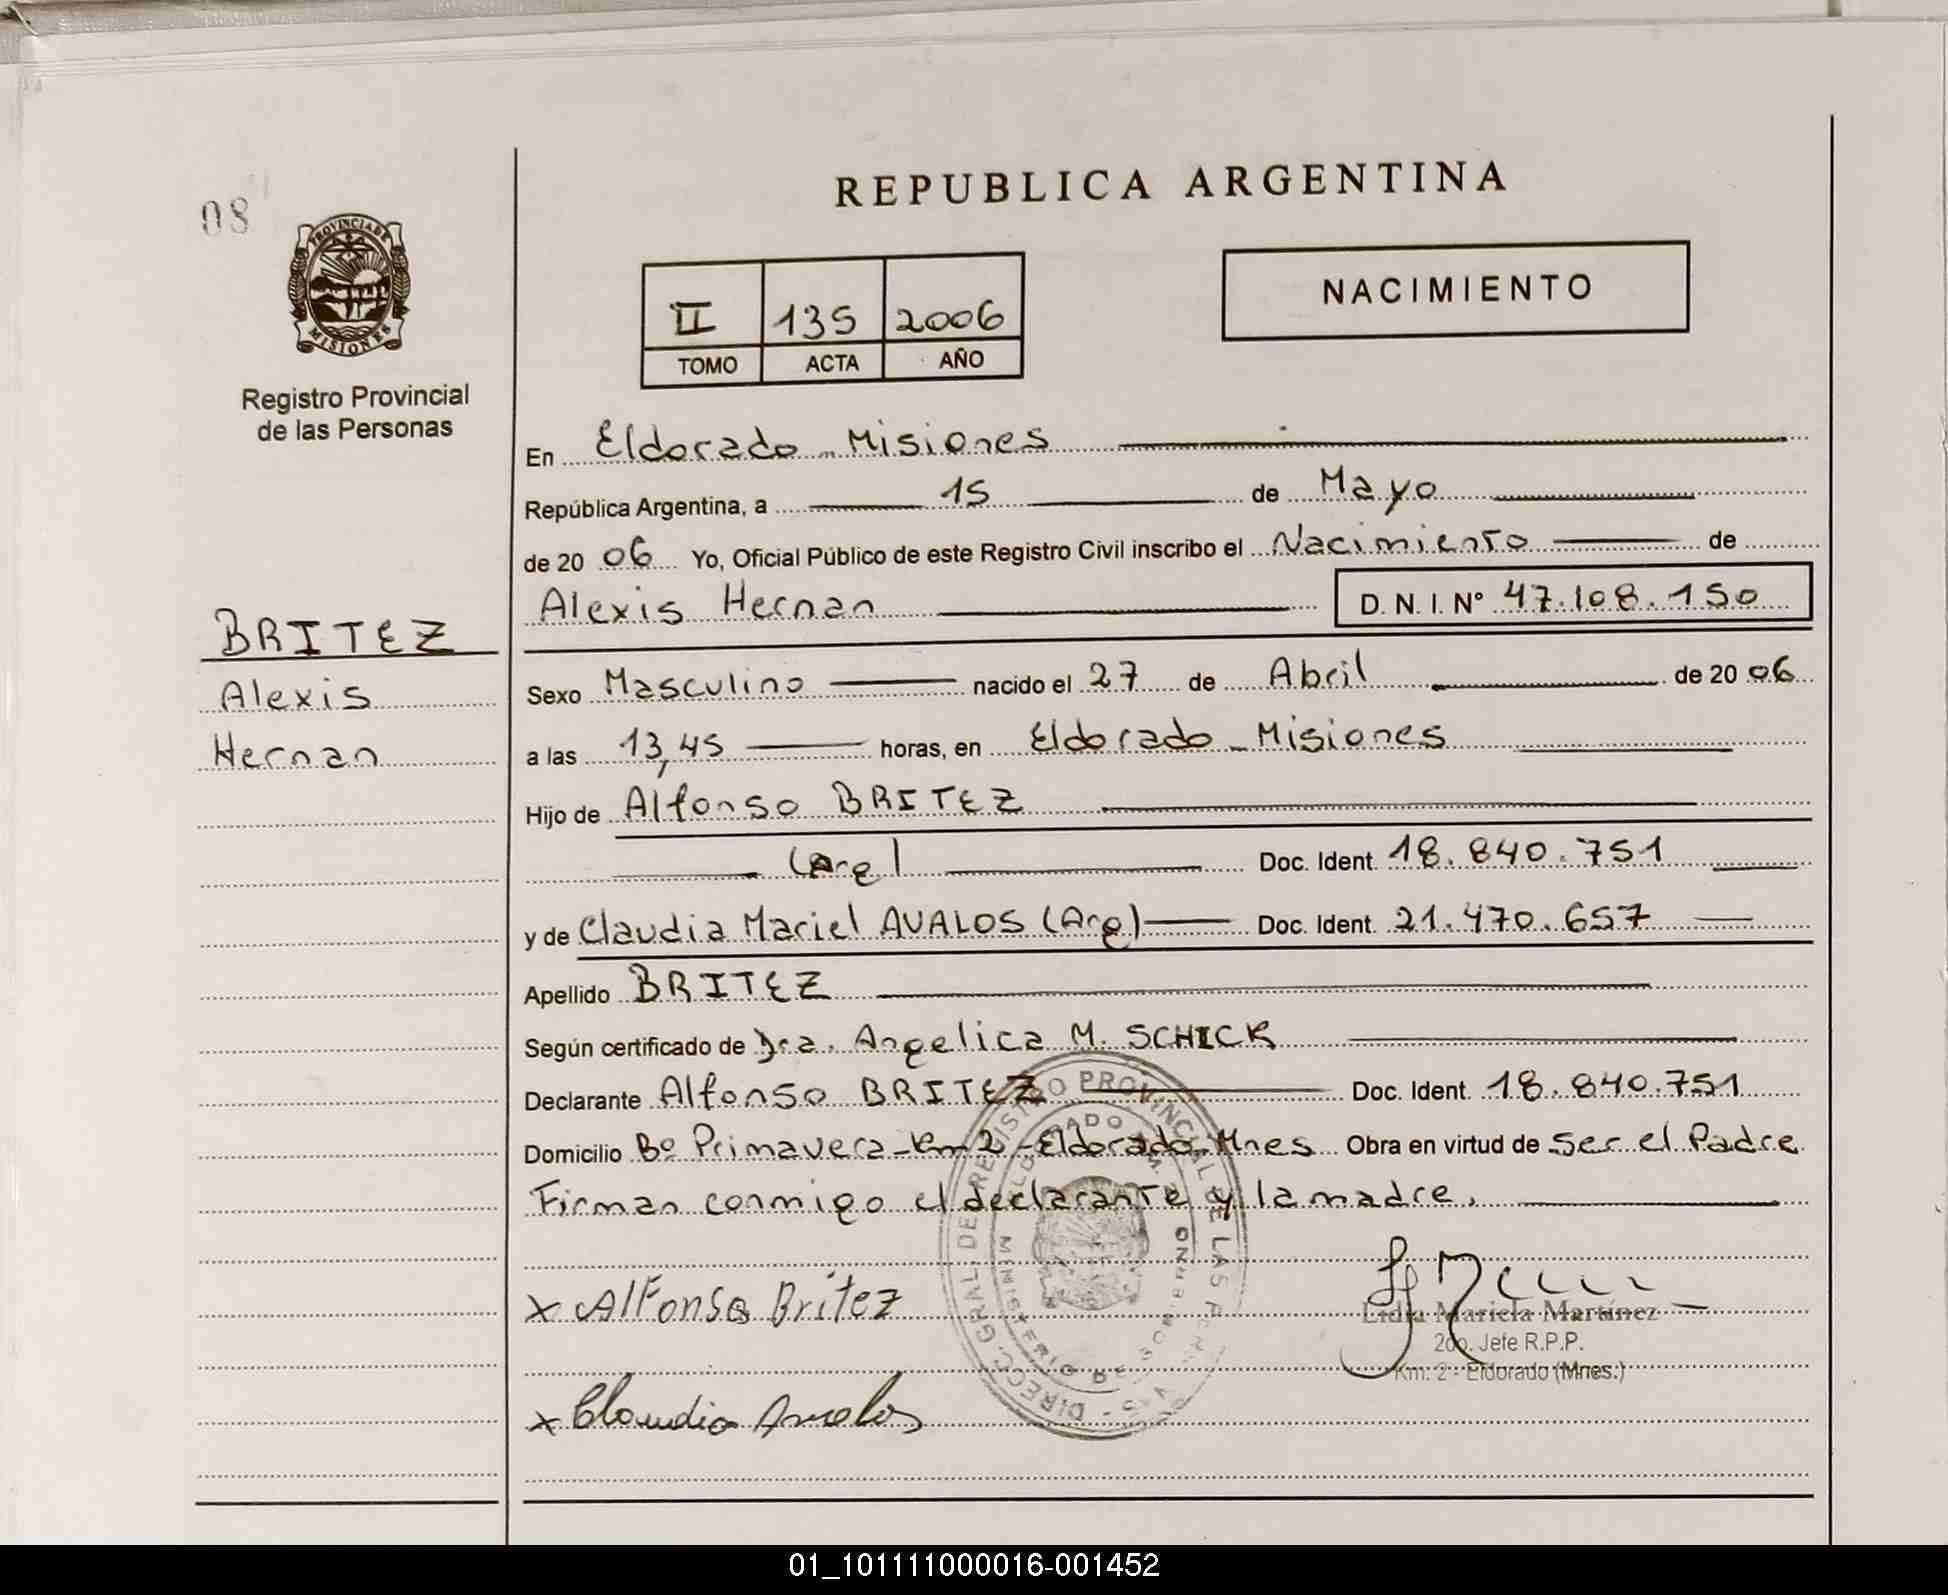 08
PROVINCIA DE
MISIONES
Registro Provincial
de las Personas
REPUBLICA ARGENTINA
II 135 2006
TOMO ACTA AÑO
NACIMIENTO
BRITEZ
Alexis
Hernan
En Eldorado - Misiones
República Argentina, a 15 de Mayo
de 20 06 Yo, Oficial Público de este Registro Civil inscribo el Nacimiento de
Alexis Hernan D. N. I. Nº 47.108.150
Sexo Masculino nacido el 27 de Abril de 20 06
a las 13,45 horas, en Eldorado - Misiones
Hijo de Alfonso BRITEZ
(Arg) Doc. Ident. 18.840.751
y de Claudia Mariel AVALOS (Arg) Doc. Ident. 21.470.657
Apellido BRITEZ
Según certificado de Dra. Angelica M. SCHICK
Declarante Alfonso BRITEZ Doc. Ident. 18.840.751
Domicilio Bº Primavera - Km 2 - Eldorado Mnes Obra en virtud de Ser el Padre
Firman conmigo el declarante y la madre.
x Alfonso Britez
Lidia Mariela Martínez
2do. Jefe R.P.P.
Km. 2 - Eldorado (Mnes.)
x Claudia Avalos
DIRECC. GRAL. DE REGISTRO PROVINCIAL DE LAS
MINISTERIO DE GOBIERNO
01_101111000016-001452